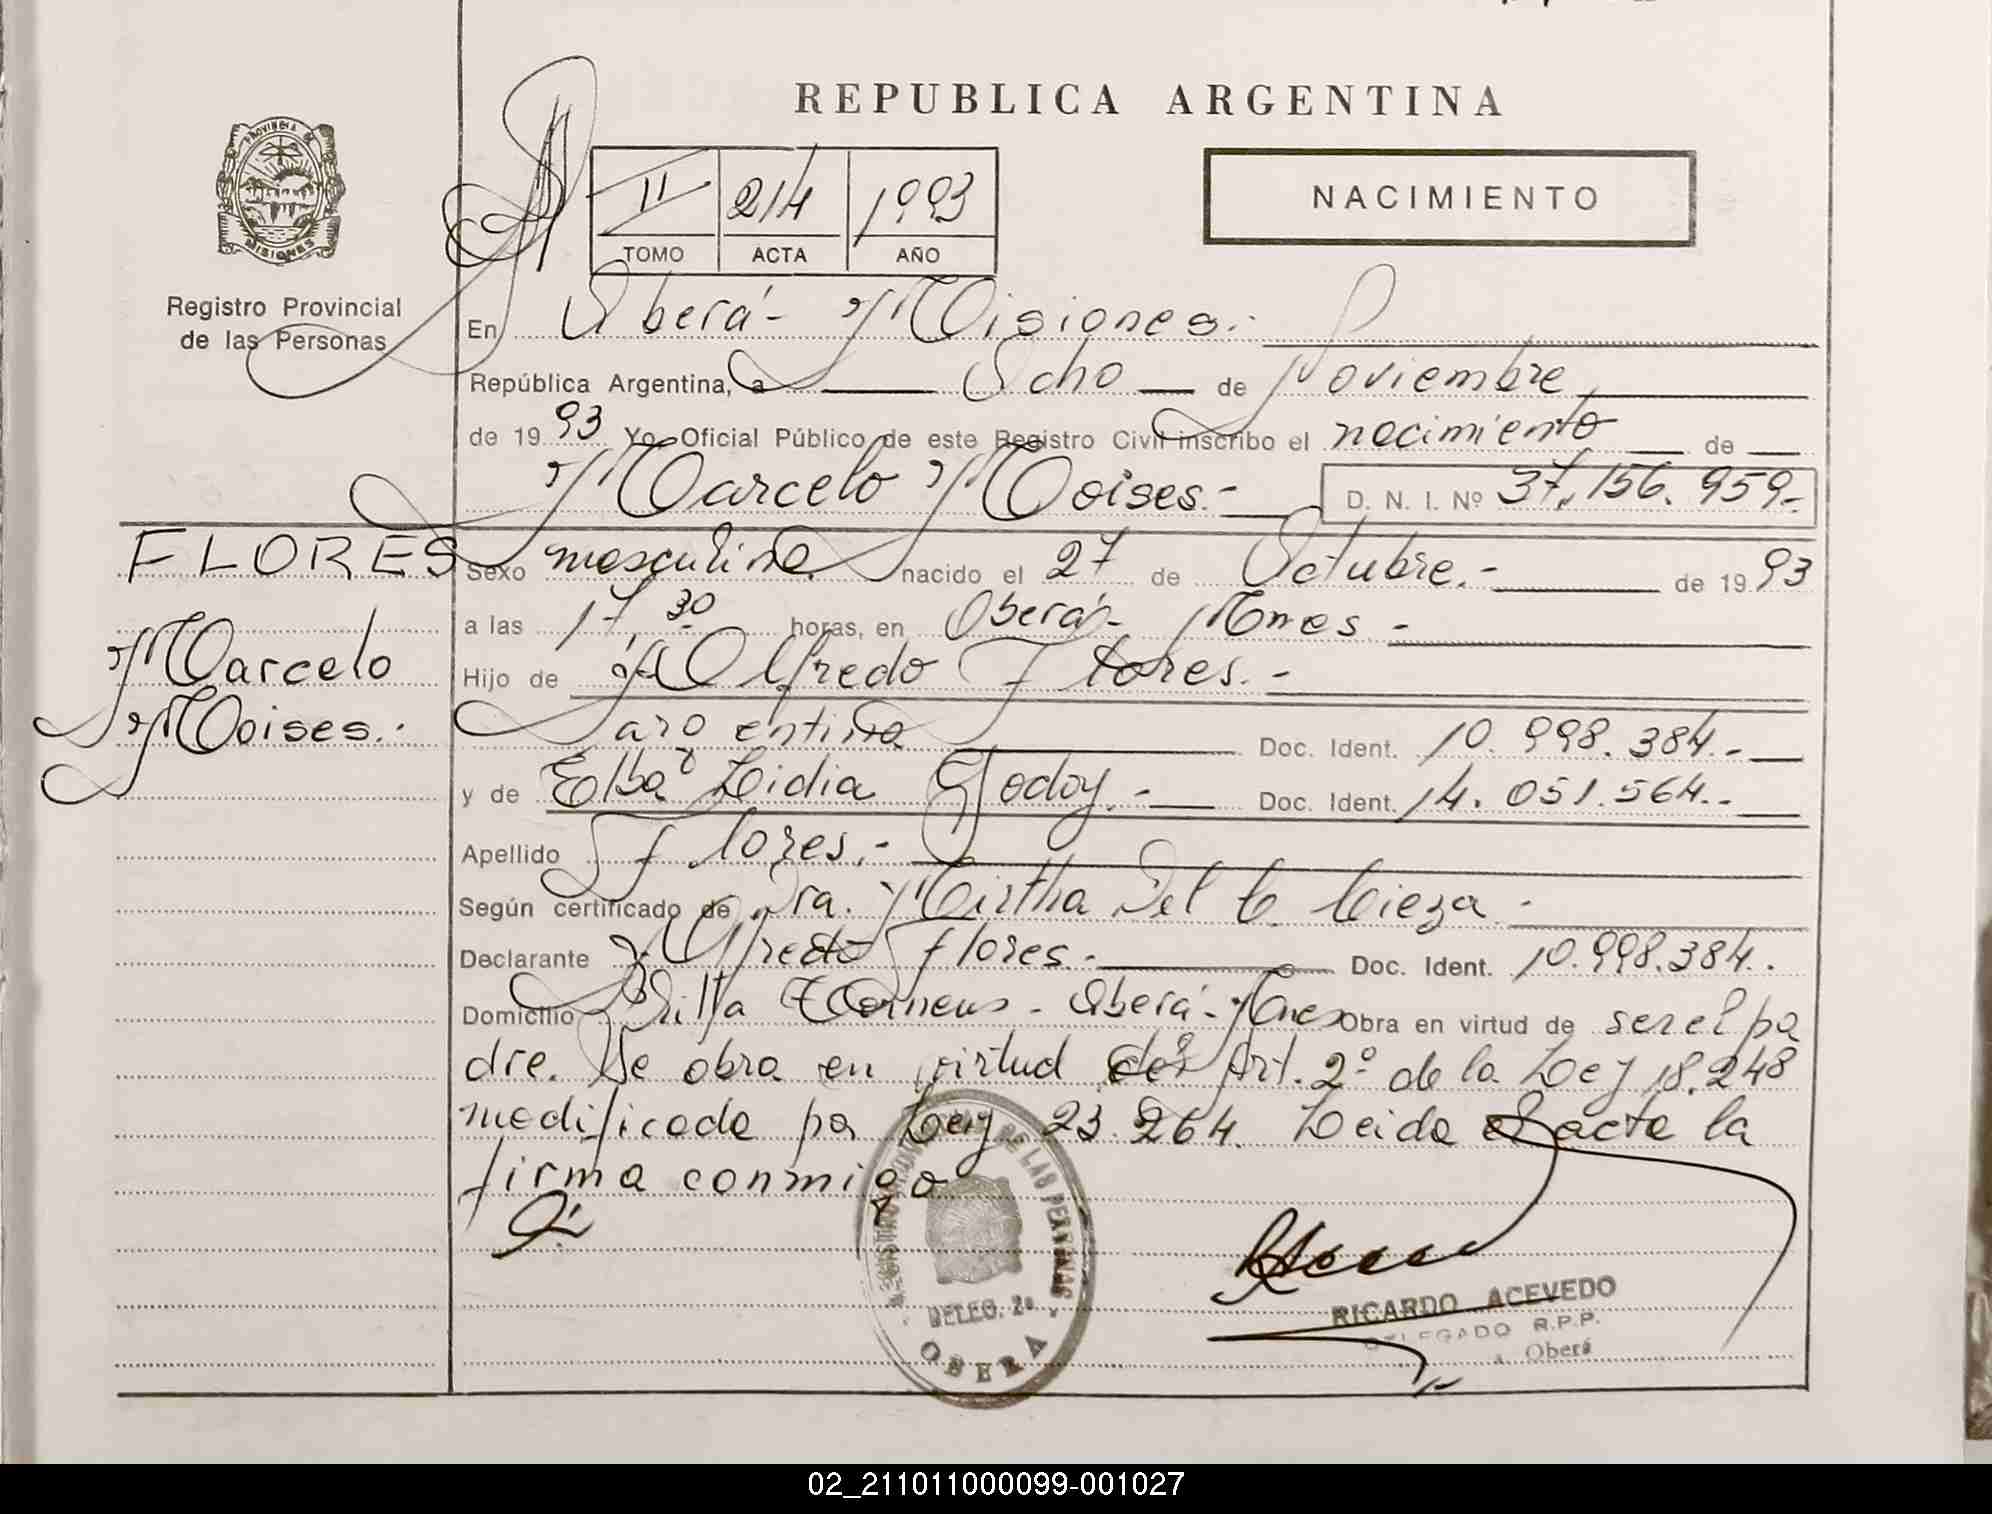 REPUBLICA ARGENTINA
PROVINCIA DE
MISIONES
Registro Provincial
de las Personas
II 214 1993
TOMO ACTA AÑO
NACIMIENTO
En Oberá - Misiones.-
República Argentina, a Ocho de Noviembre
de 1993 Yo, Oficial Público de este Registro Civil inscribo el nacimiento de
Marcelo Moises.- D. N. I. Nº 37.156.959.-
FLORES
Marcelo
Moises.-
Sexo masculino nacido el 27 de Octubre.- de 1993
a las 17,30 horas, en Oberá - Mnes -
Hijo de Alfredo Flores.-
argentino Doc. Ident. 10.998.384.-
y de Elba Lidia Godoy.- Doc. Ident. 14.051.564.-
Apellido Flores.-
Según certificado de Dra. Mirtha Del C. Cieza -
Declarante Alfredo Flores.- Doc. Ident. 10.998.384.
Domicilio Villa - Oberá - Mnes Obra en virtud de ser el pa
dre. Se obra en virtud del Art. 2º de la Ley 18.248
modificada por Ley 23.264. Leida el acta la
firma conmigo
REGISTRO DE LAS PERSONAS
DELEG. 2ª
OBERA
RICARDO ACEVEDO
DELEGADO R.P.P.
Oberá
02_211011000099-001027